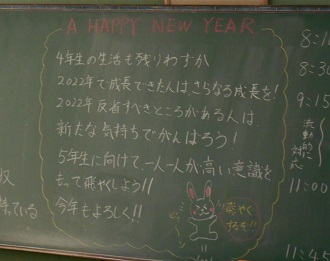 A HAPPY NEW YEAR
4年生の生活も残りわずか
2022年で成長できた人はさらなる成長を!
2022年反省すべきところがある人は
新たな気持ちでがんばろう!
5年生に向けて、一人一人が高い意識を
もって飛やくしよう!!
今年もよろしく!!
飛やく
するぞ!!
8:1
8:30
9:15
11:00
11:45